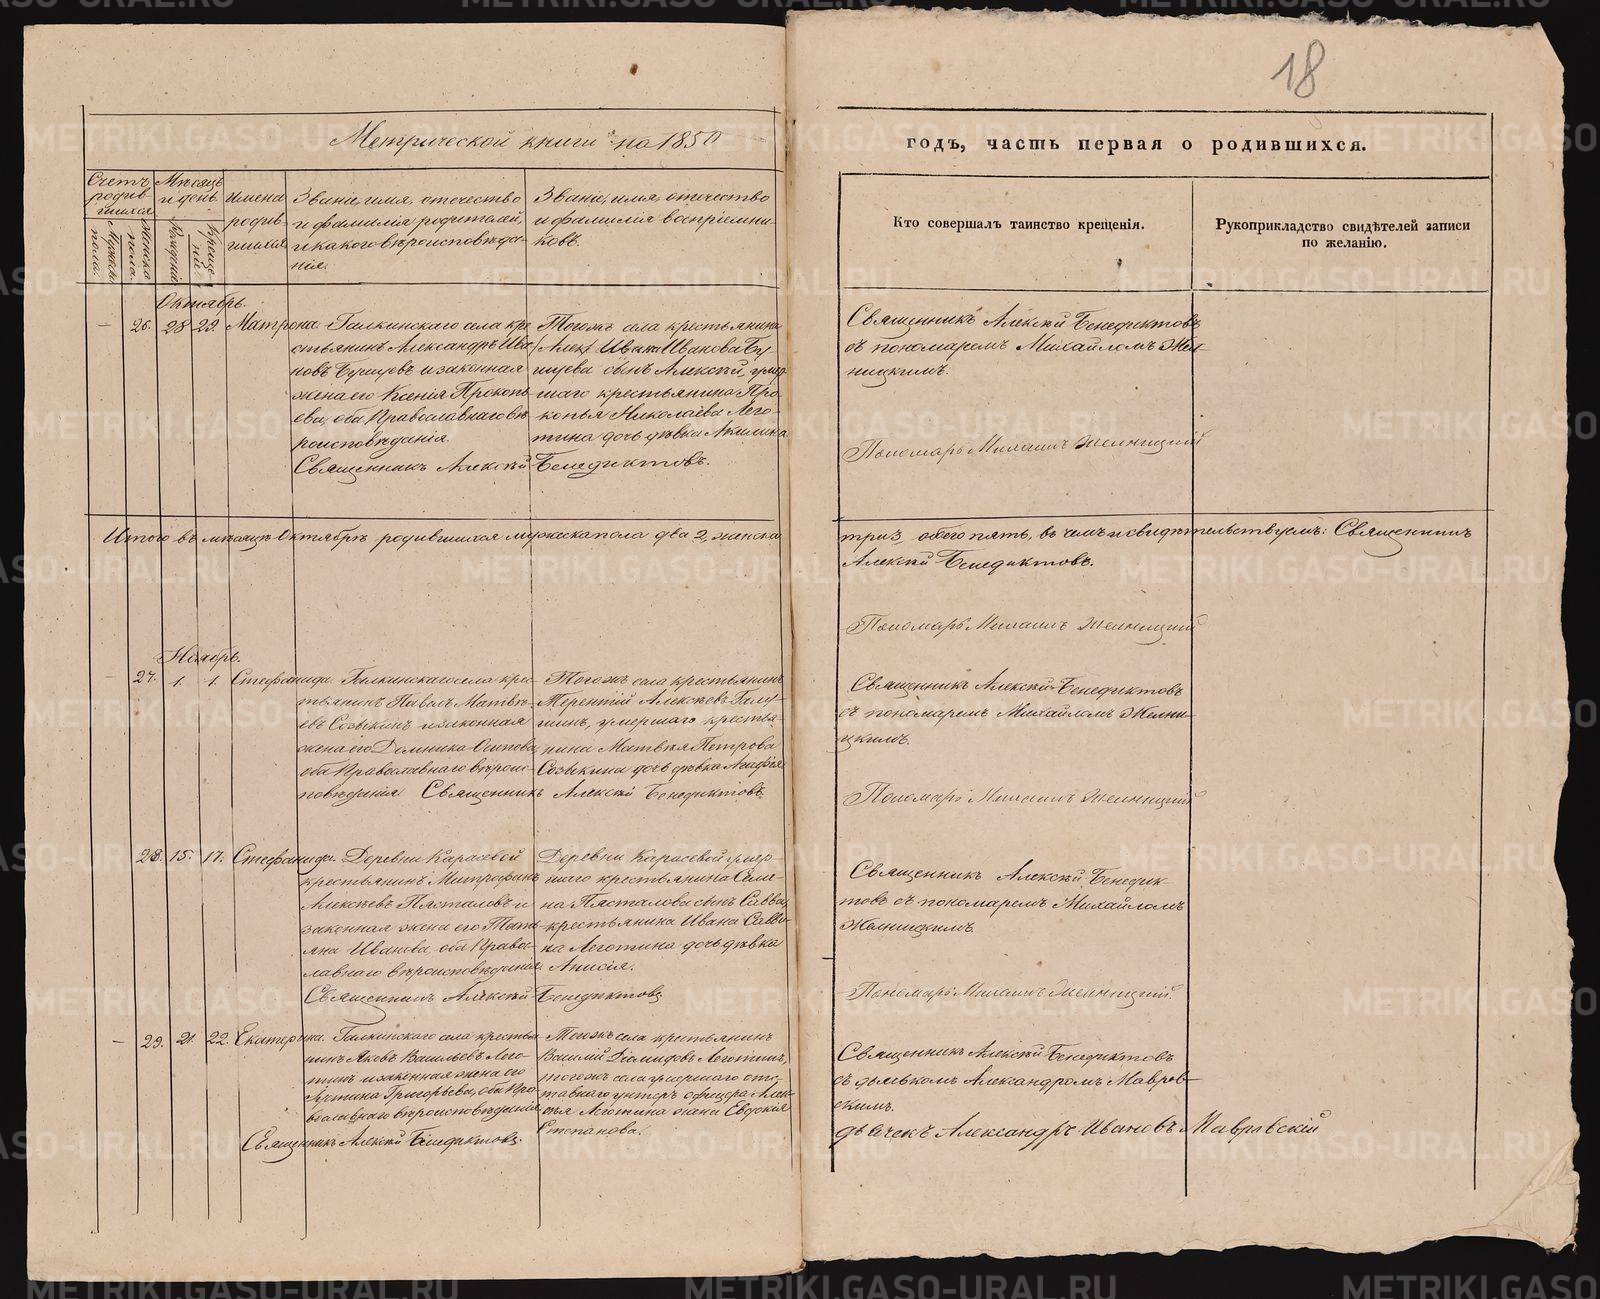 18
Метрической книги на 1850
годъ, часть первая о родившихся.
Счетъ родив-шихся
Мужеска пола.
Женска пола.
Мѣсяцъ и день.
Рожденія
Крещенія
Имена родив-шихся
Званіе, имя, отечество
и фамилія родителей,
и какого вѣроисповѣда-
нія.
Званіе, имя, отечество
и фамилія воспріемни-
ковъ.
Кто совершалъ таинство крещенія.
Рукоприкладство свидѣтелей записи
по желанію.
Октябрь.
26. 28 29. Матрона.
Галкинскаго села кре-
стьянинъ Александръ Ива
новъ Бушуевъ и законная
жена его Ксенія Прокопь
ева, оба Православнаго вѣ
роисповѣданія.
Тогожъ села крестьянина
Ивана Иванова Бу-
шуева сынъ Алексѣй, умер
шаго крестьянина Про
копья Николаева Лего-
тина дочь дѣвка Акилина
Священникъ Алексѣй Бенедиктовъ.
Священникъ Алексѣй Бенедиктовъ
съ пономаремъ Михайломъ Жел-
ницкимъ.
Пономарь Михаилъ Желницкій
Итого въ мѣсяцѣ Октябрѣ родившихся мужеска пола два 2, женска
три 3, обоего пять, въ чемъ и свидѣтельствуемъ: Священникъ
Алексѣй Бенедиктовъ.
Пономарь Михаилъ Желницкій
Ноябрь.
27. 1. 1. Стефанида.
Галкинскаго села кре-
стьянинъ Павелъ Матвѣ-
евъ Созыкинъ и законная
жена его Домника Осипова,
оба Православнаго вѣроис-
повѣданія
Тогожъ села крестьянинъ
Терентій Алексѣевъ
умершаго крестья
нина Матвѣя Петрова
Созыкина дочь дѣвка Агафія
Священникъ Алексѣй Бенедиктовъ
Священникъ Алексѣй Бенедиктовъ
съ пономаремъ Михайломъ Желни-
цкимъ.
Пономарь Михаилъ Желницкій
28. 15. 17. Стефанида.
Деревни Карасевой
крестьянинъ Митрофанъ
Алексѣевъ Пясталовъ и
законная жена его Тать
яна Иванова, оба Право-
славнаго вѣроисповѣданія
Деревни Карасевой умер-
шаго крестьянина Семе-
на Пясталова сынъ Савва,
крестьянина Ивана Савви-
на Леготина дочь дѣвка
Анисія.
Священникъ Алексѣй Бенедиктовъ
Священникъ Алексѣй Бенедик-
товъ съ пономаремъ Михайломъ
Желницкимъ.
Пономарь Михаилъ Желницкій.
29. 21. 22. Екатерина.
Галкинскаго села крестья
нинъ Яковъ Васильевъ Лего-
тинъ и законная жена его
Григорьева, оба Пра
вославнаго вѣроисповѣданія
Тогожъ села крестьянинъ
Василій Діомидовъ Леготинъ,
тогожъ села умершаго отс-
тавнаго унтеръ офицера Алек
сѣя Леготина жена Евдокія
Степанова.
Священникъ Алексѣй Бенедиктовъ.
Священникъ Алексѣй Бенедиктовъ
съ дьячкомъ Александромъ Мавров-
скимъ.
дьячекъ Александръ Ивановъ Мавровскій
METRIKI.GASO-URAL.RU